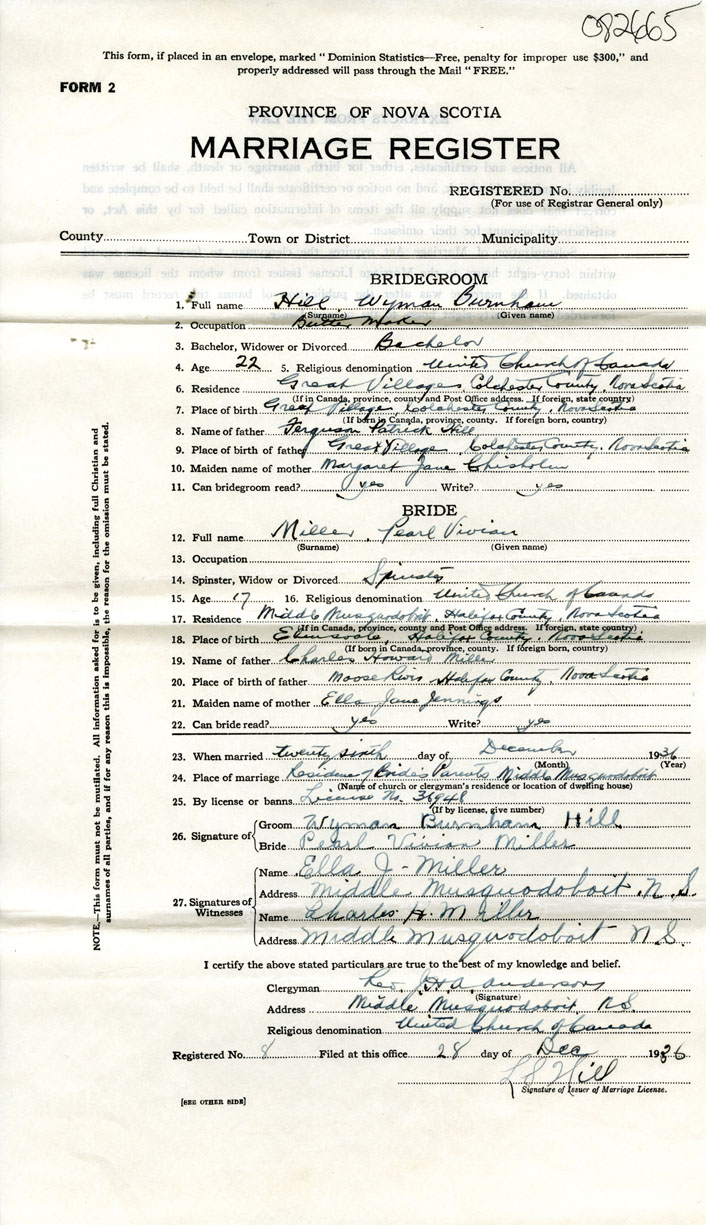 082665
This form, if placed in an envelope, marked "Dominion Statistics—Free, penalty for improper use $300," and
properly addressed will pass through the Mail "FREE."
FORM 2
PROVINCE OF NOVA SCOTIA
MARRIAGE REGISTER
REGISTERED No.
(For use of Registrar General only)
County Town or District Municipality
BRIDEGROOM
1. Full name Hill Wyman Burnham
(Surname) (Given name)
2. Occupation Butter Maker
3. Bachelor, Widower or Divorced Bachelor
4. Age 22 5. Religious denomination United Church of Canada
6. Residence Great Village, Colchester County, Nova Scotia
(If in Canada, province, county and Post Office address. If foreign, state country)
7. Place of birth Great Village, Colchester County, Nova Scotia
(If born in Canada, province, county. If foreign born, country)
8. Name of father Ferguson Patrick Hill
9. Place of birth of father Great Village, Colchester County, Nova Scotia
10. Maiden name of mother Margaret Jane Chisholm
11. Can bridegroom read? yes Write? yes
BRIDE
12. Full name Miller, Pearl Vivian
(Surname) (Given name)
13. Occupation
14. Spinster, Widow or Divorced Spinster
15. Age 17 16. Religious denomination United Church of Canada
17. Residence Middle Musquodoboit, Halifax County, Nova Scotia
(If in Canada, province, county and Post Office address. If foreign, state country)
18. Place of birth Elmsvale, Halifax County, Nova Scotia
(If born in Canada, province, county. If foreign born, country)
19. Name of father Charles Howard Miller
20. Place of birth of father Moose River, Halifax County, Nova Scotia
21. Maiden name of mother Ella Jane Jennings
22. Can bride read? yes Write? yes
23. When married twenty sixth day of December 1936
(Month) (Year)
24. Place of marriage Residence of Bride's Parents, Middle Musquodoboit
(Name of church or clergyman's residence or location of dwelling house)
25. By license or banns License No. 36948
(If by license, give number)
26. Signature of Groom Wyman Burnham Hill
Bride Pearl Vivian Miller
27. Signatures of Witnesses
Name Ella J. Miller
Address Middle Musquodoboit, N.S.
Name Charles H. Miller
Address Middle Musquodoboit N.S.
I certify the above stated particulars are true to the best of my knowledge and belief.
Clergyman Rev. J.H.A. Anderson
(Signature)
Address Middle Musquodoboit N.S.
Religious denomination United Church of Canada
Registered No. 8 Filed at this office 28 day of Dec 1936
Hill
Signature of Issuer of Marriage License.
[SEE OTHER SIDE]
NOTE.—This form must not be mutilated. All information asked for is to be given, including full Christian and
surnames of all parties, and if for any reason this is impossible, the reason for the omission must be stated.